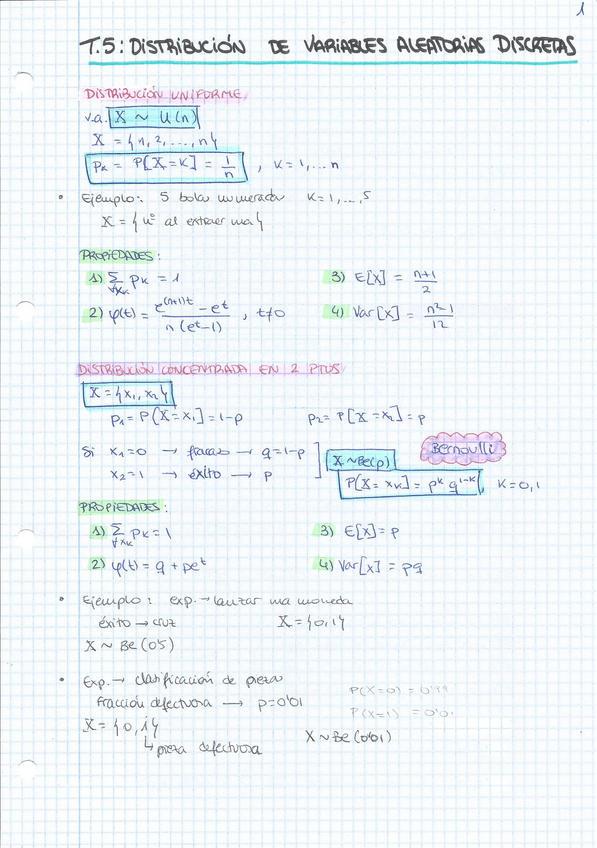 1
T.5: DISTRIBUCIÓN DE VARIABLES ALEATORIAS DISCRETAS
DISTRIBUCIÓN UNIFORME
v.a. X ~ U(n)
X = {1, 2, ..., n}
Pk = P[X=k] = 1/n , k = 1, ... n
• Ejemplo: 5 bolas numeradas k=1,...,5
X = {nº al extraer una}
PROPIEDADES:
1) Σ∀xk pk = 1 3) E[X] = n+1/2
2) φ(t) = e^(n+1)t - e^t / n(e^t-1) , t≠0 4) Var[X] = n²-1/12
DISTRIBUCIÓN CONCENTRADA EN 2 PTOS
X = {x1, x2}
P1 = P(X=x1) = 1-p P2 = P[X=x2] = p
Si x1=0 → fracaso → q=1-p
x2=1 → éxito → p
X ~Be(p) Bernoulli
P[X=xk] = p^k q^1-k, k=0,1
PROPIEDADES:
1) Σ∀xk pk = 1 3) E[X] = p
2) φ(t) = q + pe^t 4) Var[X] = pq
• Ejemplo: exp. → lanzar una moneda
éxito → cruz X = {0,1}
X ~ Be(0'5)
• Exp. → clasificación de piezas
Fracción defectuosa → p=0'01 P(X=0) = 0'99
X = {0,1} P(X=1) = 0'01
↳ pieza defectuosa X ~ Be(0'01)